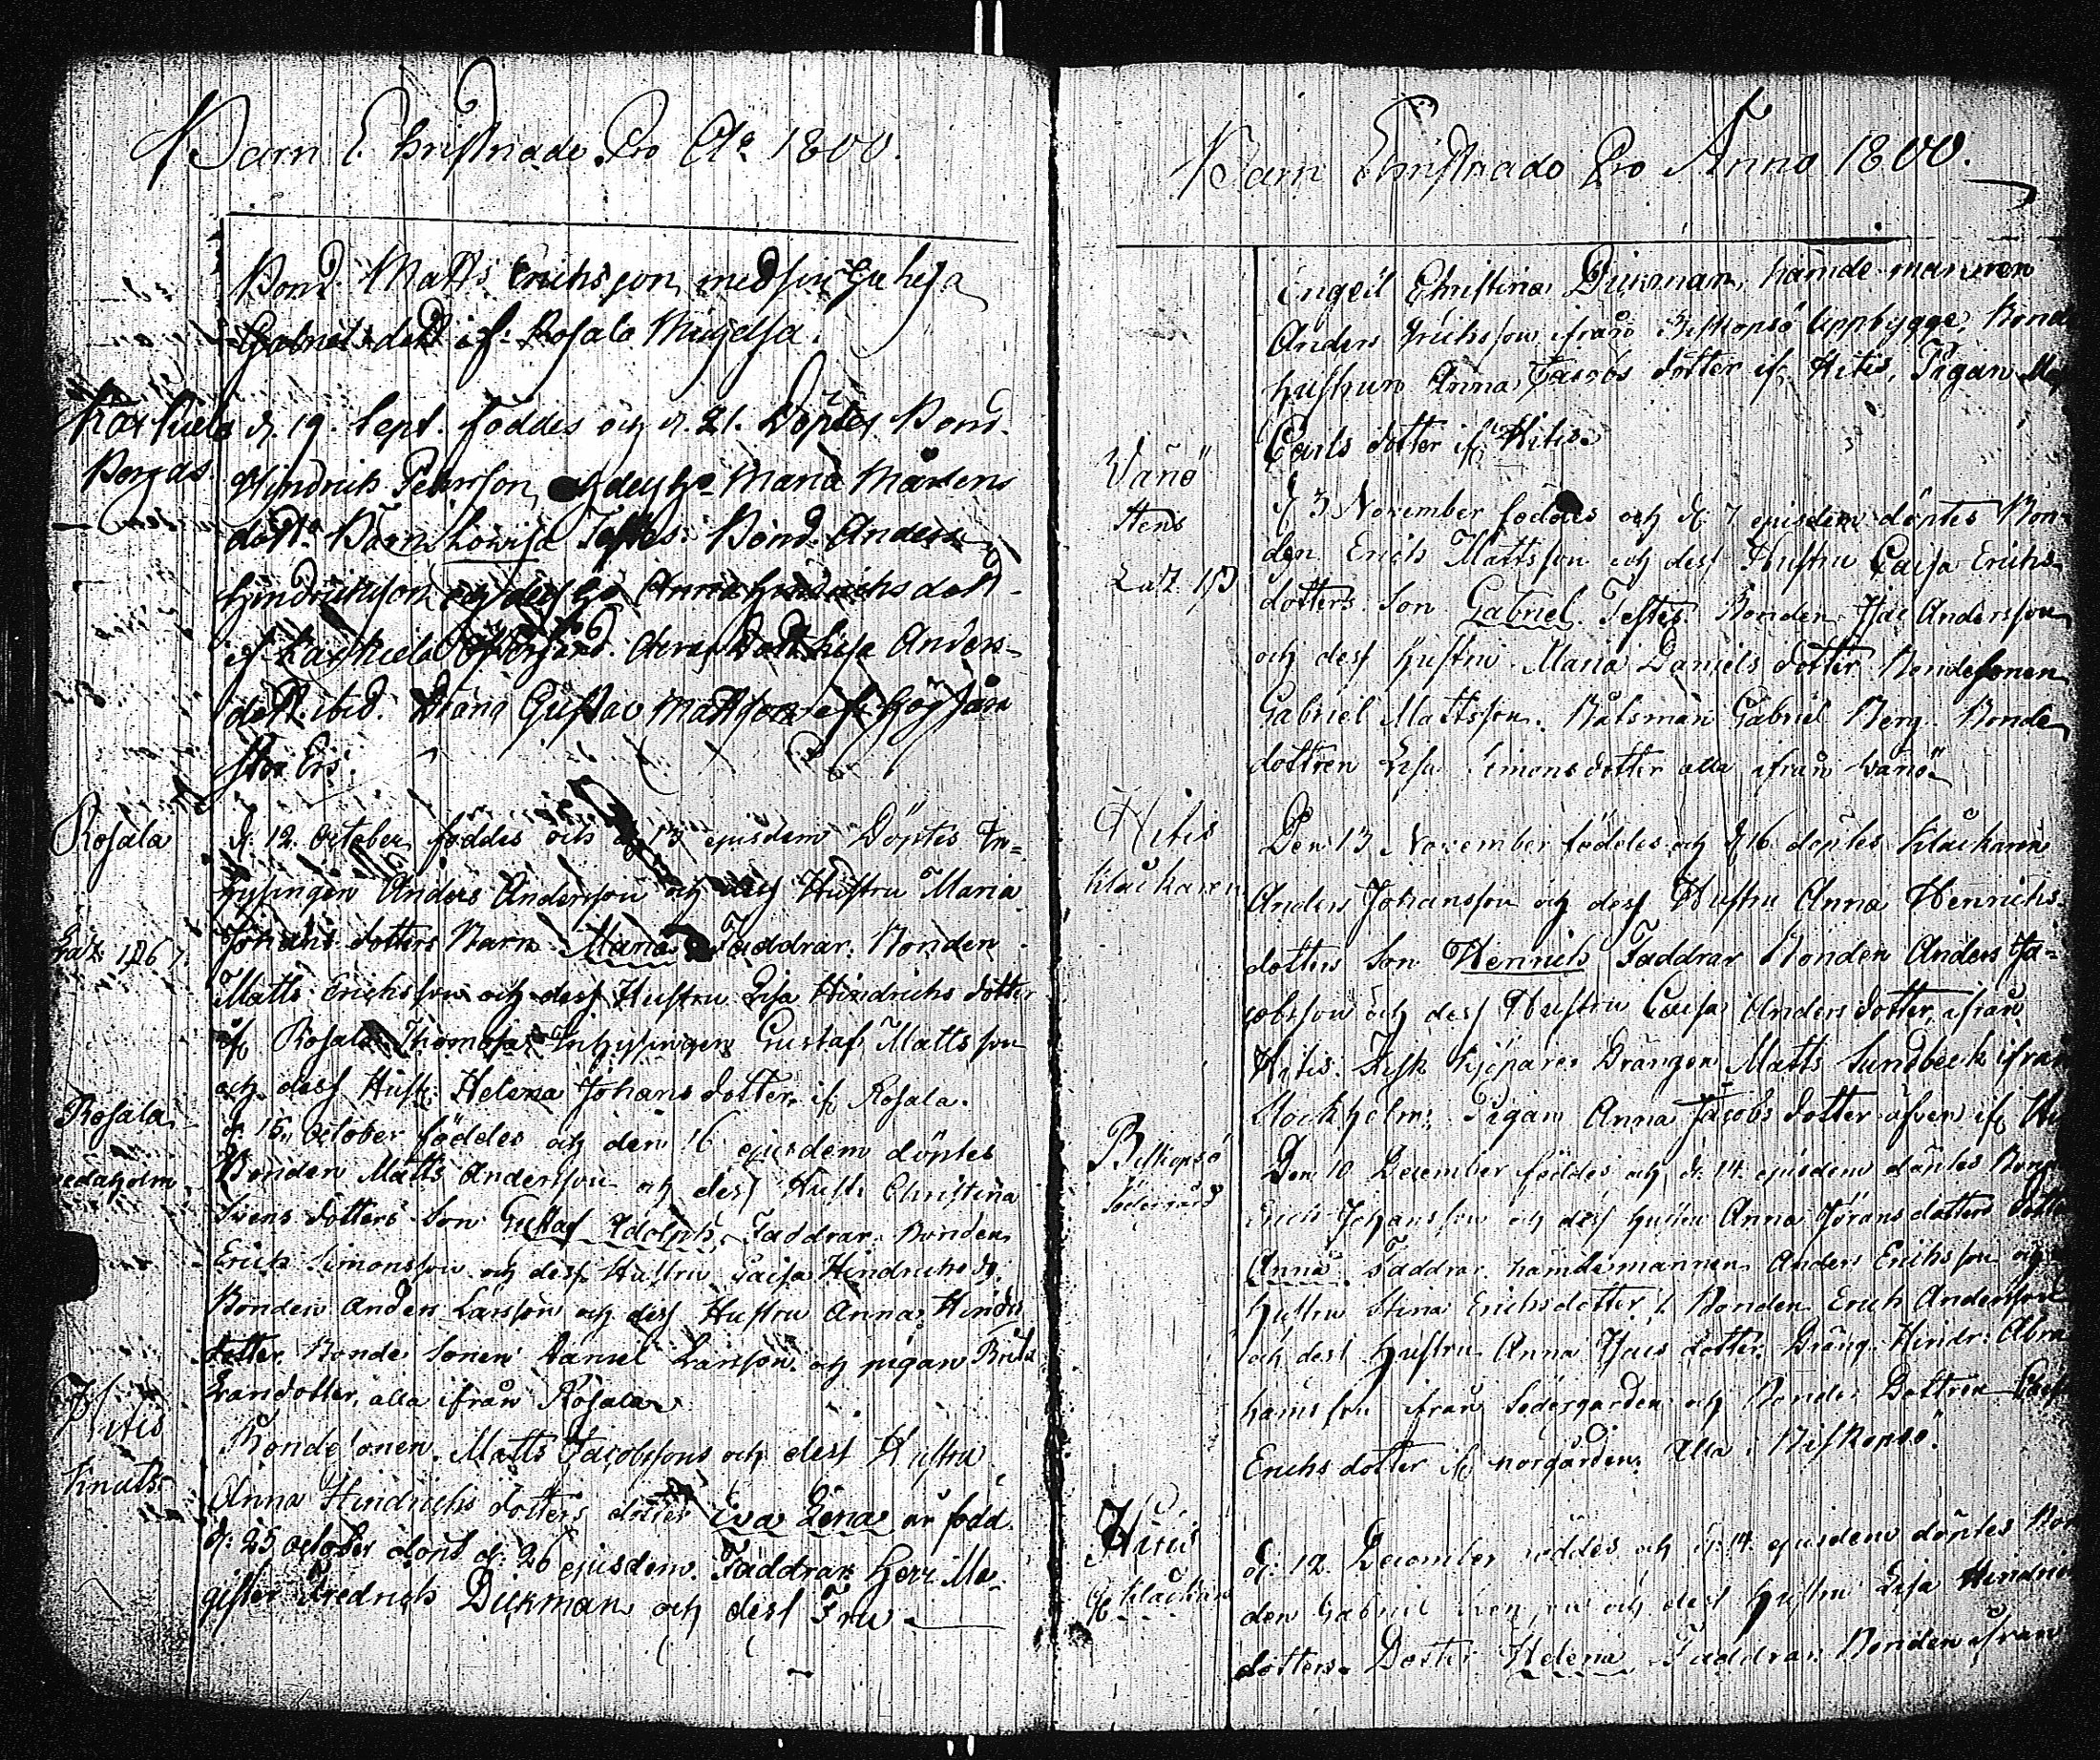 Barn Christnade Pro Ao 1800.
Bond. Matts Erichsson med sin Hu Lisa
Gabriels dott. if. Rosala
d. 19. Sept. föddes och d. 21. Döptes Bond.
Hindrich Petersson och dess H. Maria Mårtens
dott. Barn Lowisa Testes: Bond. Anders
Hindrichsson och dess H. Anna Hindrichs dott.
Lisa Anders-
dott. ibid. Dräng Gustav Mattsson if. Högsåra
Stor Ers.
Rosala
d. 12. October föddes och d. 13 ejusdem Döptes In-
hysingen Anders Andersson och dess Hustru Maria
Johans dotters Barn Maria Faddrar: Bonden
Matts Erichsson och dess Hustru Lisa Hindrichs dotter
if. Rosala Inhysingen Gustaf Mattsson
och dess Hust. Helena Johans dotter if. Rosala.
Rosala
d. 15. October föddes och den 16 ejusdem döptes
Bonden Matts Andersson och dess Hust. Christina
Svens dotters Son Gustaf Adolph. Faddrar. Bonden
Erich Simonsson och dess Hustru Caisa Hindrichs d.
Bonden Anders Larsson och dess Hustru Anna Hindrs
dotter. Bonde Sonen Daniel Larsson och pigan
alla ifrån Rosala
Hitis
Knuts
Bonde sonen Matts Jacobssons och dess Hustru
Anna Hindrichs dotters dotter Eva Lena är född
d. 25 October döpt d. 26 ejusdem. Faddrar Herr Ma-
gister Fredrich Dickman och dess Fru
Barn Christnade Pro Anno 1800.
Engel Christina Dickman, nämdemannen
Anders Erichsson ifrån Biskopsö Uppbygge, Bond
hustrun Anna Jacobs dotter if. Hitis, Pigan
Carls dotter if. Hitis.
Vänö
d. 3 November föddes och d. 7 ejusdem döptes Bon-
den Erich Mattsson och dess Hustru Caisa Erichs-
dotters Son Gabriel. Testes. Bonden Isac Andersson
och dess Hustru Maria Daniels dotter Bondesonen
Gabriel Mattsson. Båtsman Gabriel Berg. Bonde
dottren Lisa Simons dotter alla ifrån Vänö
Hitis
Klåckaren
Den 13 November föddes och d. 16 döptes Klåckaren
Anders Johansson och dess Hustru Anna Henrichs
dotters Son Henrich Faddrar Bonden Anders Ja-
cobsson och dess Hustru Caisa Anders dotter ifrån
Hitis. Fisk Kjöparen Drängen Matts Sundbeck ifrån
Stockholm. Pigan Anna Jacobs dotter äfven if.
Biskopsö
Södergård
Den 10 December föddes och d. 14. ejusdem döptes Bond
Erich Johansson och dess hustru Anna Jörans dotters dotter
Anna. Faddrar nämdemannen Anders Erichsson och
hustru Stina Erichsdotter, Bonden Erich Andersson
och dess hustru Anna Isacs dotter. Dräng Hindr. Abra
hamsson ifrån Södergården och Bonde Dottren
Erichs dotter if. norgården. Alla i Biskopsö.
Hitis
Klåckars
d. 12. December föddes och d. 14. ejusdem döptes Bon
den Gabriel och dess hustru Lisa Hindrichs
dotters Dotter Helena Faddrar Bonden ifrån